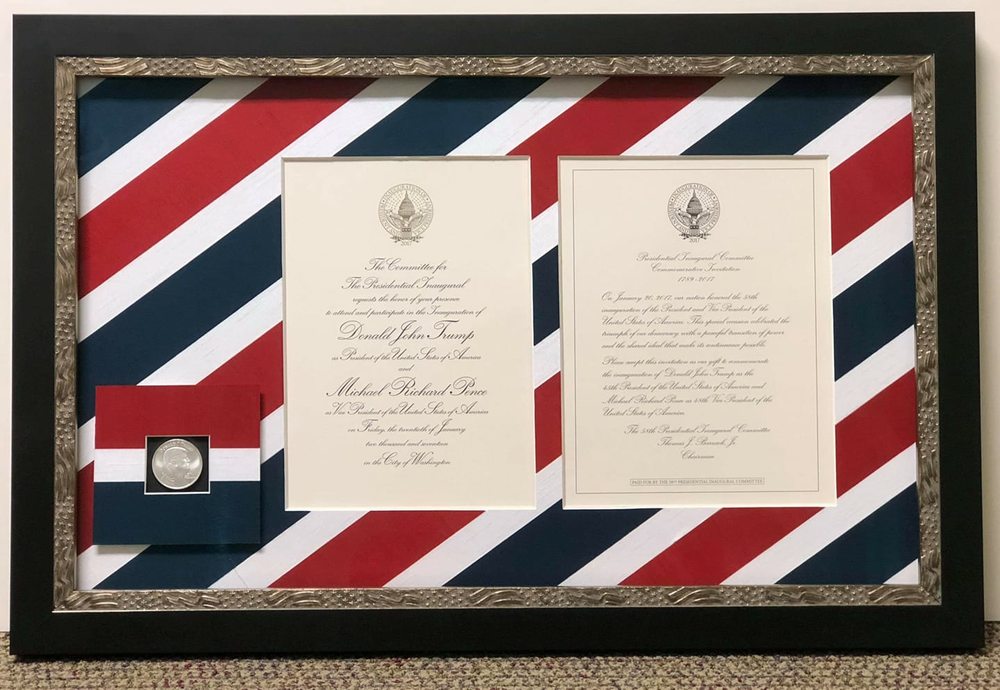 2017
The Committee for
The Presidential Inaugural
requests the honor of your presence
to attend and participate in the Inauguration of
Donald John Trump
as President of the United States of America
and
Michael Richard Pence
as Vice President of the United States of America
on Friday, the twentieth of January
two thousand and seventeen
in the City of Washington
2017
Presidential Inaugural Committee
Commemorative Invitation
1789-2017
On January 20, 2017, our nation honored the 58th
inauguration of the President and Vice President of the
United States of America. This special occasion celebrated the
triumph of our democracy with a peaceful transition of power
and the shared ideal that makes its continuance possible.
Please accept this invitation as our gift to commemorate
the inauguration of Donald John Trump as the
45th President of the United States of America and
Michael Richard Pence as 48th Vice President of the
United States of America.
The 58th Presidential Inaugural Committee
Thomas J. Barrack, Jr.
Chairman
PAID FOR BY THE 58TH PRESIDENTIAL INAUGURAL COMMITTEE